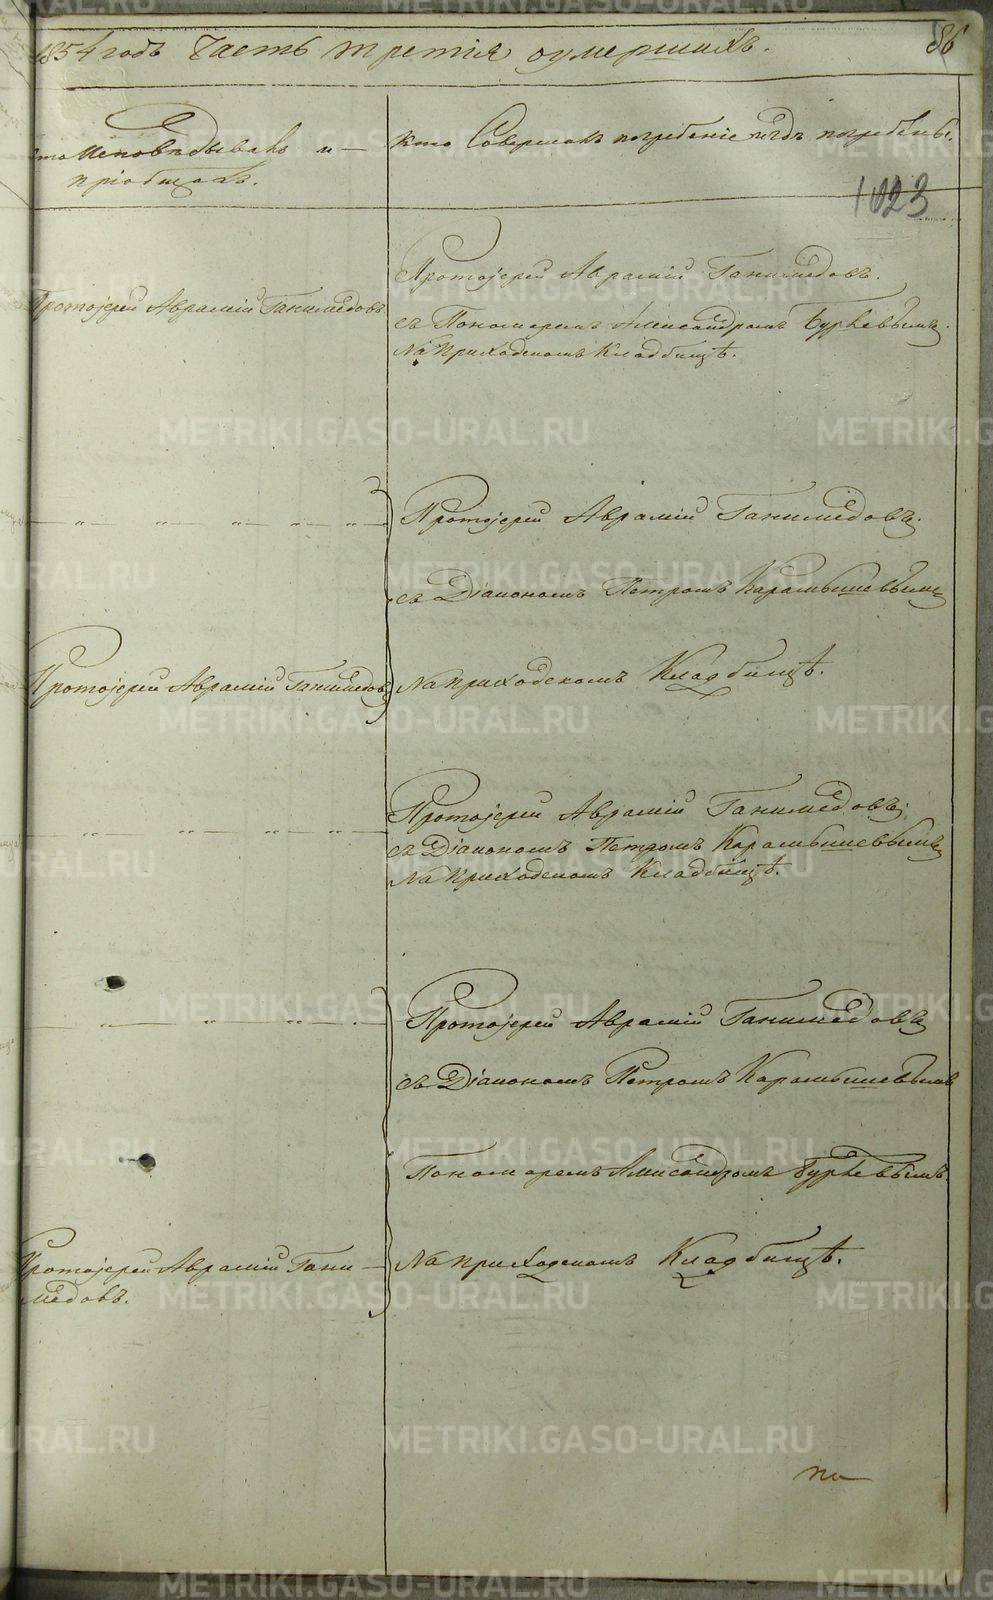 1854 годъ Часть третія оумершихъ.
86
Кто исповѣдывалъ и
пріобщалъ.
Кто совершалъ погребеніе и гдѣ погребены.
1023
Протоіерей Аврамій Ганимедовъ
Протоіерей Аврамій Ганимедовъ.
съ Пономаремъ Александромъ Бурѣевымъ.
На Приходскомъ Кладбищѣ.
Протоіерей Аврамій Ганимедовъ.
съ Діакономъ Петромъ Карамышевымъ
Протоіерей Аврамій Ганимедовъ
На приходскомъ Кладбищѣ.
Протоіерей Аврамій Ганимедовъ
съ Діакономъ Петромъ Карамышевымъ
На приходскомъ Кладбищѣ.
Протоіерей Аврамій Ганимедовъ
съ Діакономъ Петромъ Карамышевымъ
Пономаремъ Александромъ Бурѣевымъ.
Протоіерей Аврамій Гани-
медовъ.
На приходскомъ Кладбищѣ.
по
METRIKI.GASO-URAL.RU